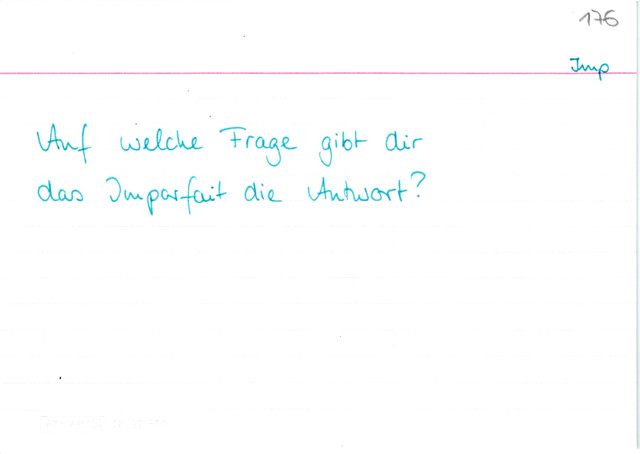 176
Imp
Auf welche Frage gibt dir
das Imparfait die Antwort?